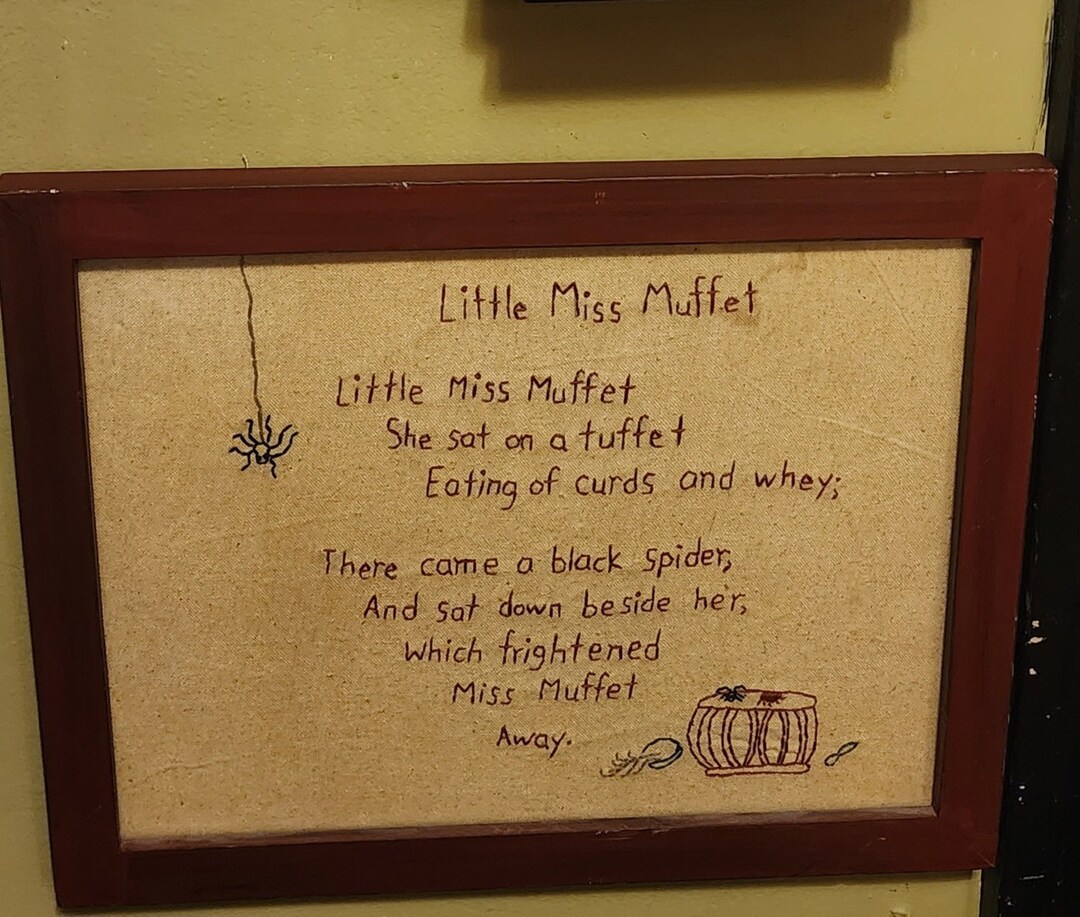 Little Miss Muffet
Little Miss Muffet
She sat on a tuffet
Eating of curds and whey;
There came a black spider,
And sat down beside her,
Which frightened
Miss Muffet
Away.